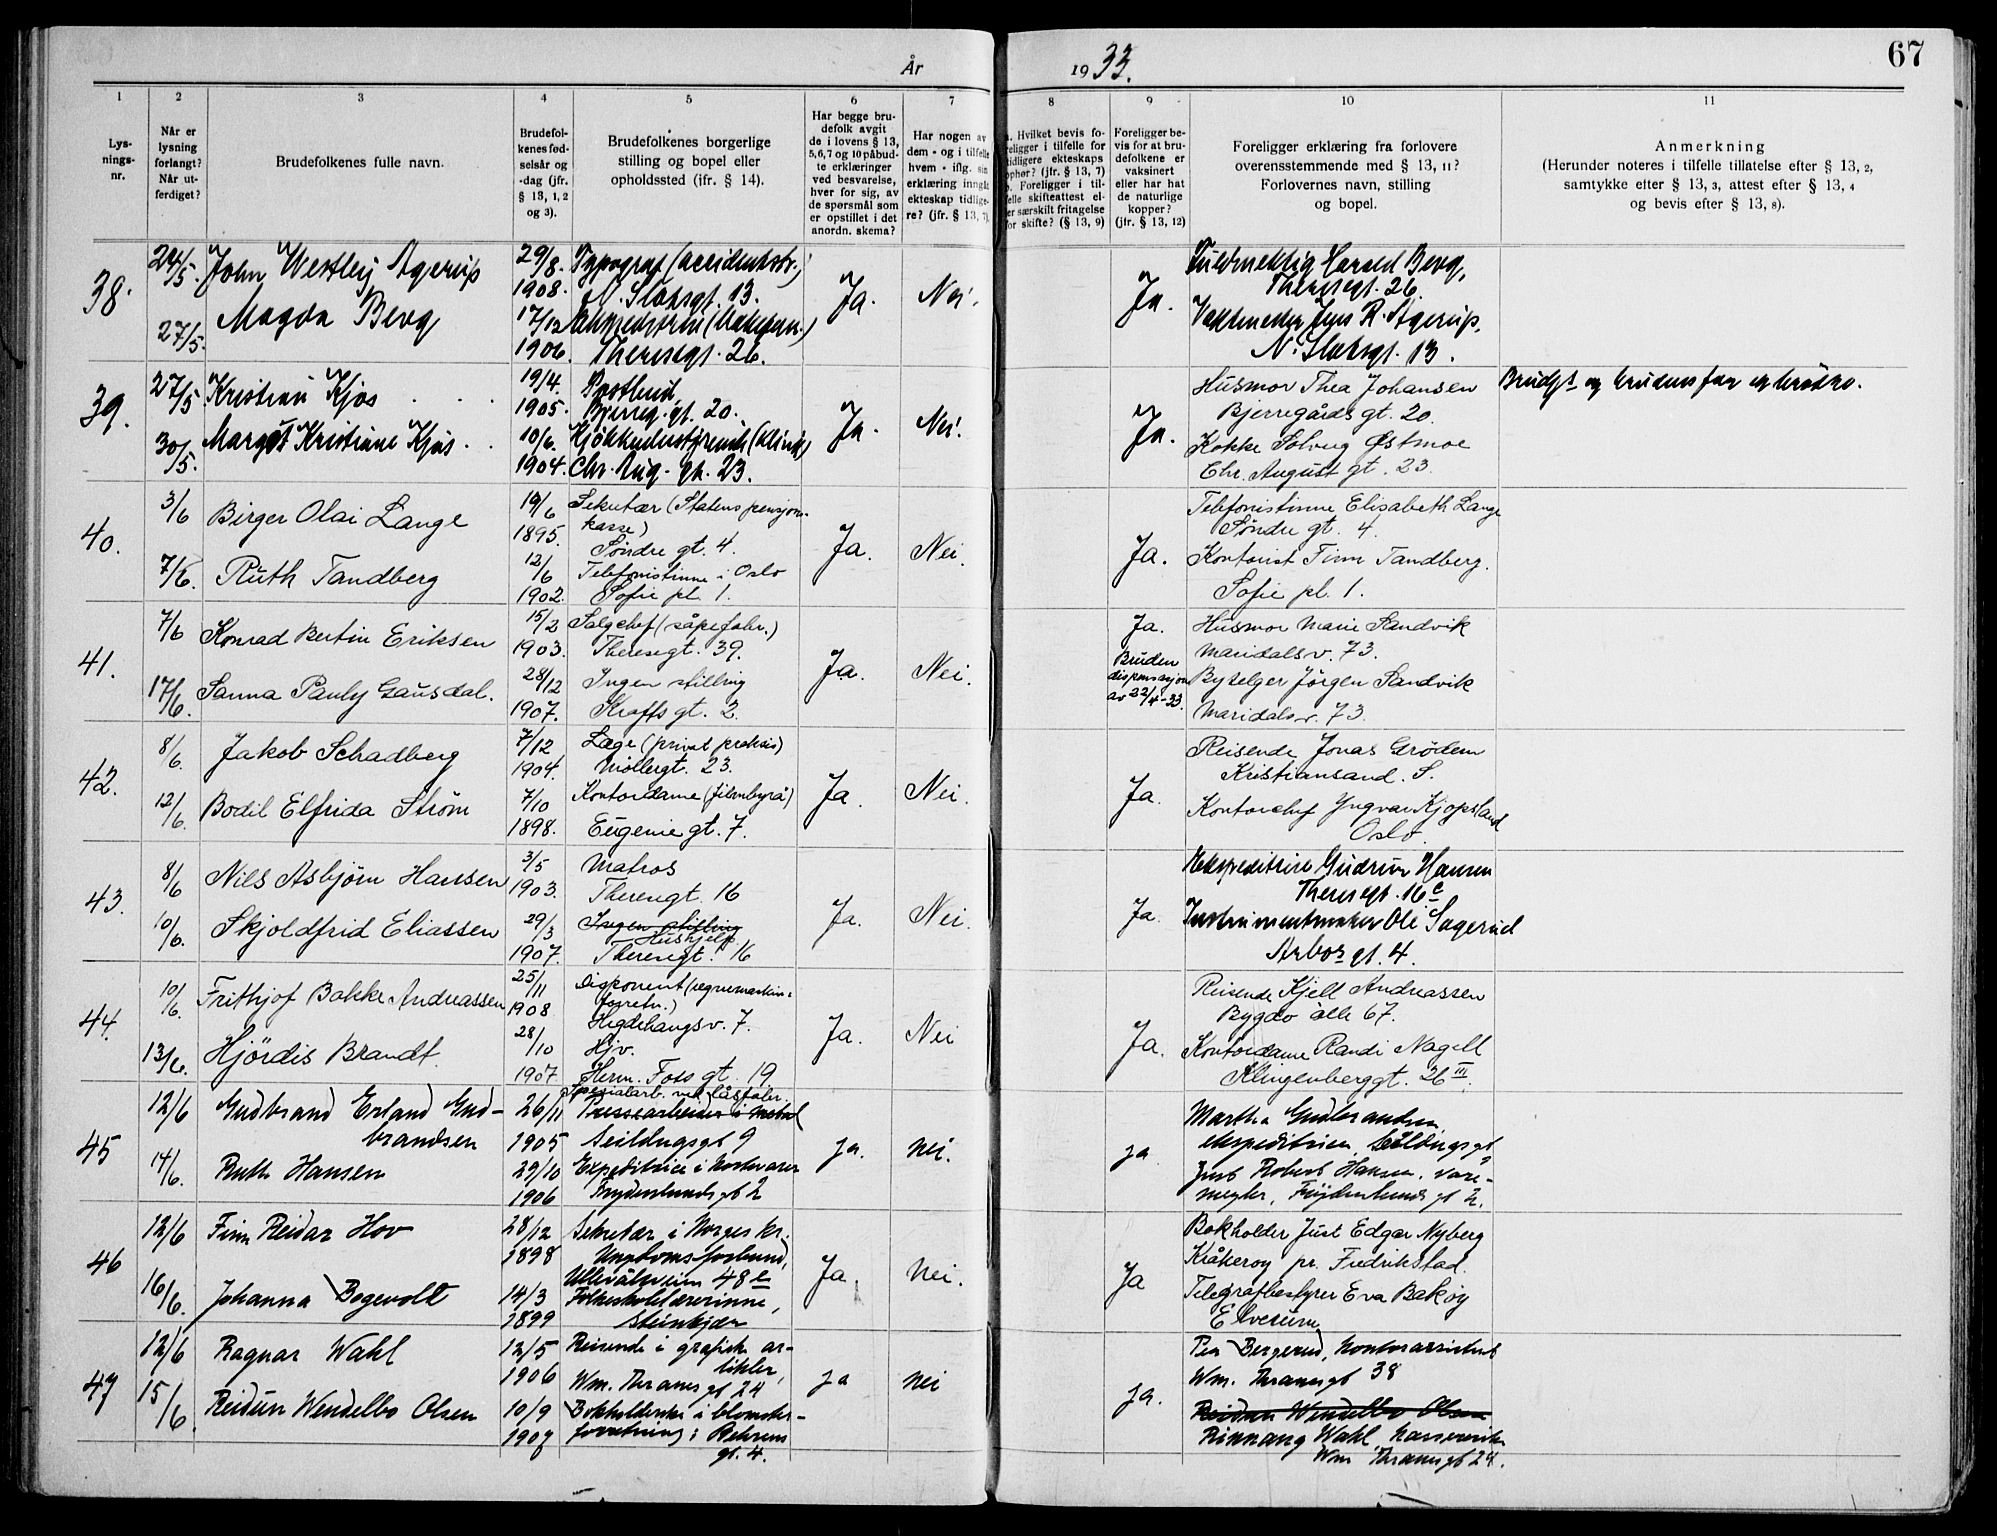 År 1933.
67
1
2
3
4
5
6
7
8
9
10
11
Lys-
nings-
nr.
Når er
lysning
forlangt?
Når ut-
ferdiget?
Brudefolkenes fulle navn.
Brudefol-
kenes fød-
selsår og
-dag (jfr.
§ 13, 1, 2
og 3).
Brudefolkenes borgerlige
stilling og bopel eller
opholdssted (jfr. § 14).
Har begge bru-
defolk avgit
de i lovens § 13,
5,6,7 og 10 påbud-
te erklæringer
ved besvarelse,
hver for sig, av
de spørsmål som
er opstillet i det
anordn. skema?
Har nogen av
dem - og i tilfelle
hvem - iflg. sin
erklæring inngåt
ekteskap tidlige-
re? (jfr. § 13, 7).
a. Hvilket bevis fo-
religger i tilfelle for
tidligere ekteskaps
ophør? (jfr. § 13, 7)
b. Foreligger i til-
felle skifteattest el-
ler særskilt fritagelse
for skifte? (§ 13, 9)
Foreligger be-
vis for at bru-
defolkene er
vaksinert
eller har hat
de naturlige
kopper?
(jfr. § 13, 12)
Foreligger erklæring fra forlovere
overensstemmende med § 13, 11?
Forlovernes navn, stilling
og bopel.
Anmerkning
(Herunder noteres i tilfelle tillatelse efter § 13, 2,
samtykke etter § 13, 3, attest efter § 13, 4
og bevis efter § 13, 8).
38.
24/5.
27/5.
John Westley Agerup
Magda Berg
29/8.
1908.
17/12
1906.
Typograf
N. Slotsgt. 13.
Theresegt. 26.
Ja.
Nei.
Ja.
Fuldmektig Harald Berg,
Theresegt. 26.
Vaktmester Jens R. Agerup,
N. Slotsgt. 13.
39.
27/5
30/5.
Kristian Kjos
Margot Kristiane Kjos
19/4.
1905.
10/6.
1904.
Postbud,
Bjerreg. gt. 20.
Kjøkkenbestyrerinde (klinik)
Chr. Aug. gt. 23.
Ja.
Nei.
Ja.
Husmor Thea Johansen
Bjerregårds gt. 20.
Kokke Solveig Østmoe
Chr. August gt. 23.
Brudgs. og brudens far er brødre.
40.
3/6
7/6.
Birger Olai Lange
Ruth Tandberg
19/6
1895.
12/6
1902.
Sekretær (Statens pensjons-
kasse)
Søndre gt. 4.
Telefonistinne i Oslo
Sofie pl. 1.
Ja.
Nei.
Ja.
Telefonistinne Elisabeth Lange
Søndre gt. 4.
Kontorist Finn Tandberg.
Sofie pl. 1.
41.
7/6
17/6.
Konrad Bertin Eriksen
Sanna Pauly Gausdal.
15/2
1903.
28/12
1907.
Salgchef (såpefabr.)
Theresegt. 39.
Ingen stilling
Kraffs gt. 2.
Ja.
Nei.
Ja.
Bruden
dispensasjon
av 22/4-33.
Husmor Marie Sandvik
Maridalsv. 73.
Byselger Jörgen Sandvik
Maridalsv. 73.
42.
8/6.
12/6.
Jakob Schadberg
Bodil Elfrida Strøm
7/12
1904.
7/10
1898.
Læge (privat praksis)
Møllergt. 23.
Kontordame (filmbyrå)
Eugenie gt. 7.
Ja.
Nei.
Ja.
Reisende Jonas Grödem
Kristiansand. S.
Kontorchef Yngvar Kjopsland
Oslo.
43.
8/6
10/6.
Nils Asbjørn Hansen
Skjoldfrid Eliassen
3/5
1903.
29/3
1907.
Matros
Theresegt. 16
Ingen stilling
Hushjelp
Theresegt. 16
Ja.
Nei.
Ja.
Ekspeditrise Gudrun Hansen
Theresegt. 16c
Instrumentmaker Ole Sagerud
Arbos gt. 4.
44.
10/6.
13/6.
Frithjof Bakke Andreassen
Hjördis Brandt.
25/11
1908
28/10
1907
Disponent (regnemaskin-
forretn.)
Hegdehaugsv. 7.
Hjv.
Herm. Foss gt. 19
Ja.
Nei
Ja.
Reisende Kjell Andreassen
Bygdø alle 67.
Kontordame Randi Nagell
Klingenberggt. 26 III.
45
12/6
14/6.
Gudbrand Erland Gud-
brandsen
Ruth Hansen
26/11
1905
29/10
1906
Spesialarb. ved låsfabr.
Pressearbeider i metal
Seildugsgt 9
Expeditrice i
Frydenlunds gt 2
ja.
nei.
ja
Martha Gudbrandsen
ekspeditrice, Seildugsgt 9
Just Robert Hansen, vare-
megler, Frydenlunds gt 2.
46
12/6
16/6.
Finn Reidar Hov
Johanna Bogevolt
28/12
1898
14/3
1899
Sekretær i Norges kr.
Ungdomsforbund,
Ullevålsveien 48e
Folkeskolelærerinne,
Steinkjær
Ja.
nei.
Ja
Bokholder Just Edgar Nyberg
Kråkerøy pr. Fredrikstad.
Telegrafbestyrer Eva Bakøy
Elverum
47
12/6
15/6.
Ragnar Wahl
Reidun Wendelbo Olsen
12/5
1906
10/9
1907
Reisende i grafiske ar-
tikler,
Wm. Thranes gt 24
Bokholderske i blomster-
forretning; Behrens
gt. 4.
ja
nei
ja.
Per Bergerud, kontorassistent
Wm. Thranesgt 38
Reidun Wendelbo Olsen
Rinnaug Wahl, kassererske
Wm Thranesgt 24.